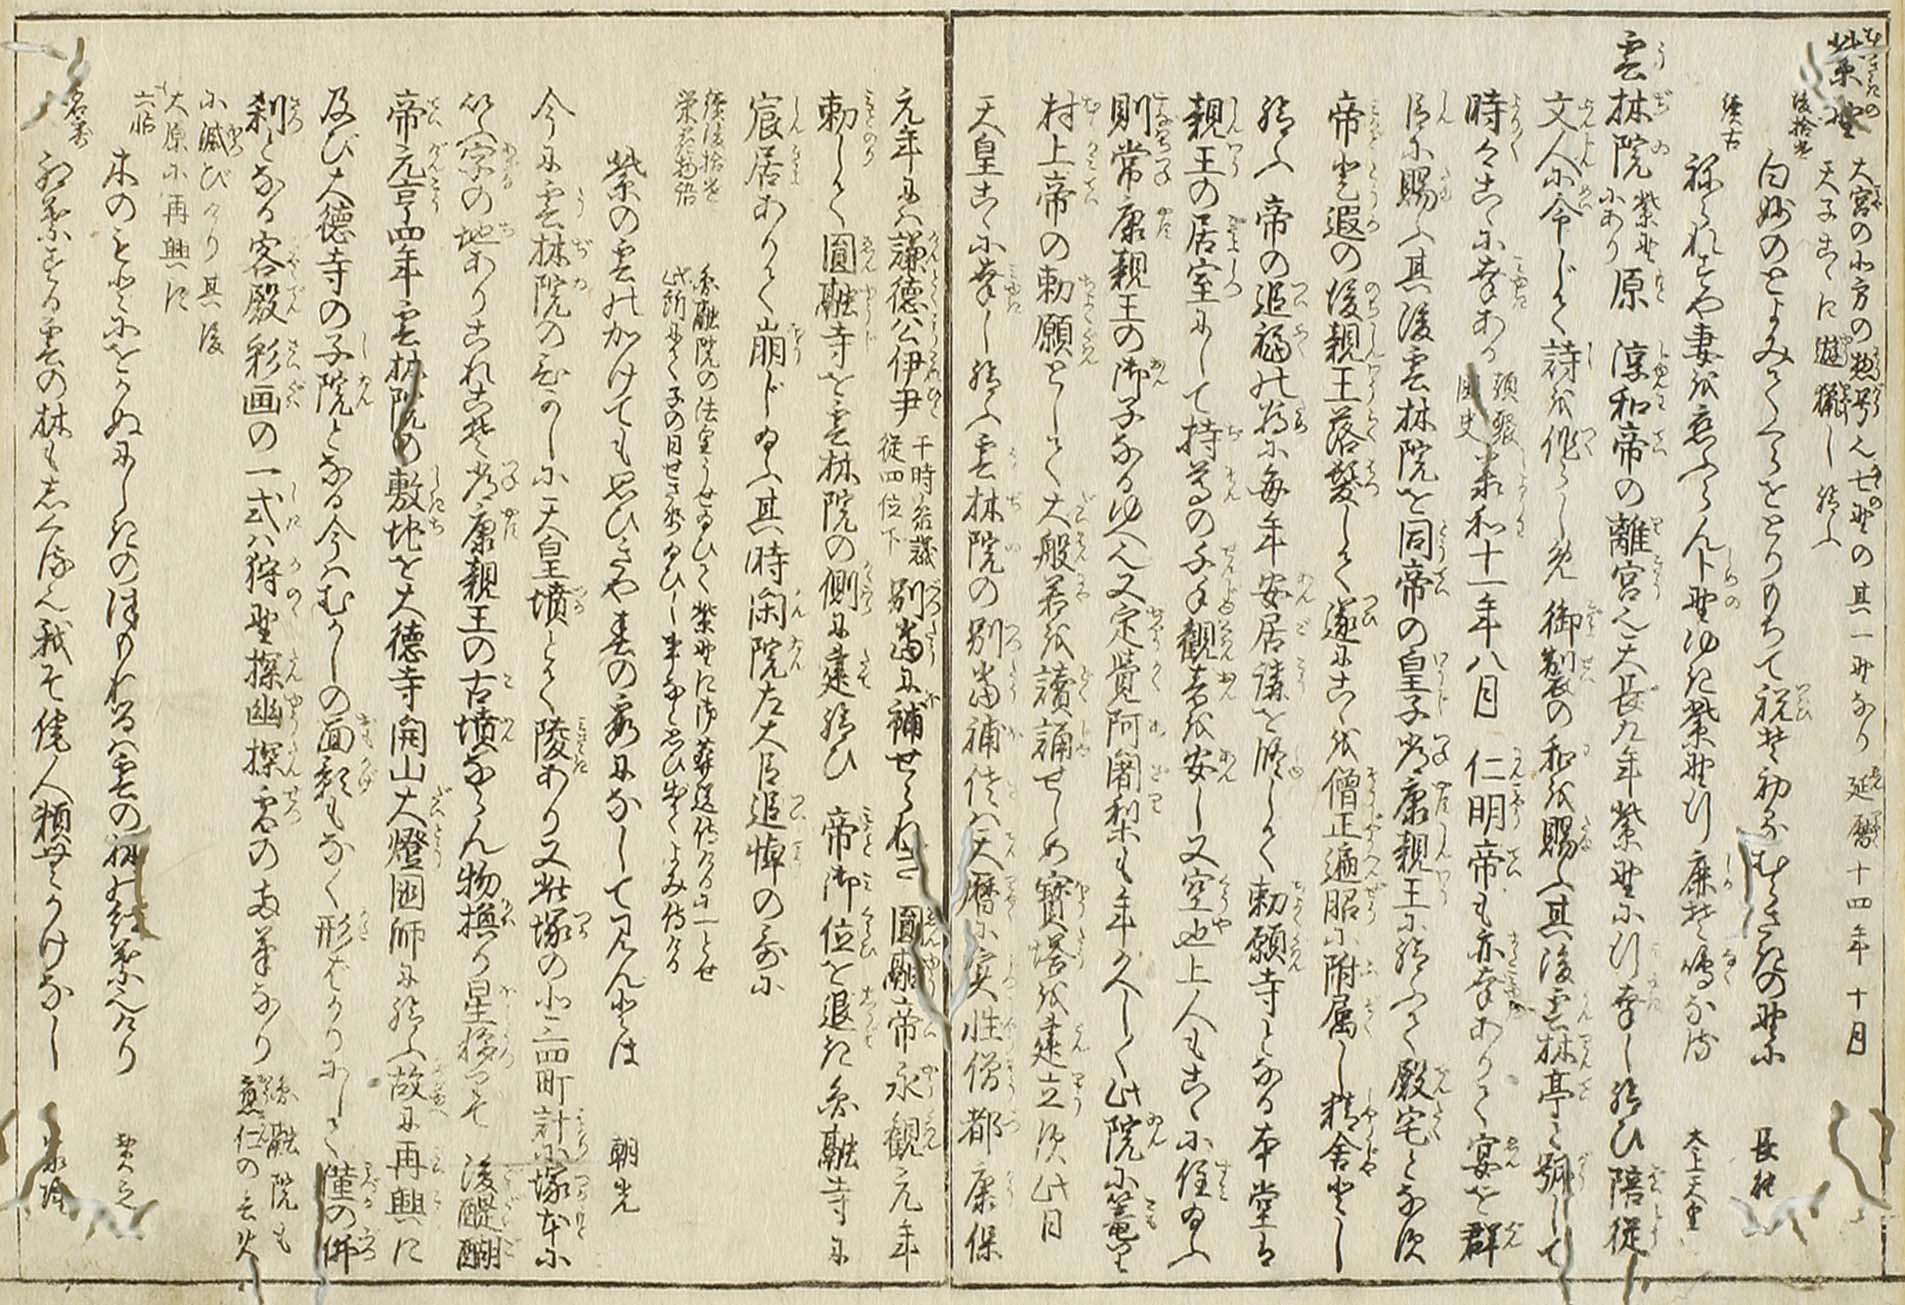 紫野 大宮の北方の惣号也七野の其一野なり延暦十四年十月
天子こゝに遊猟し給ふ
後拾遺
白妙のとよみてくらをとりもちて祝そ初るむらさきの野に 長能
続古
ねられすや妻を恋らん下野ゆき紫野行鹿そ鳴なる 太上天皇
雲林院 紫野にあり 原 淳和帝の離宮也天長九年紫野に行幸し給ひ陪従
文人に令じて詩を作らしめ 御製の和を賜ふ其後雲林亭と号して
時々こゝに幸あり 類聚国史 承和十一年八月 仁明帝も亦幸ありて宴を群
臣に賜ふ其後雲林院を同帝の皇子常康親王に給ふて殿宅となす
帝登遐の後親王落髪して遂にこゝを僧正遍昭に附属し精舎とし
給ふ 帝の追福の為に毎年安居講を修して勅願寺となる本堂は
親王の居室にして持尊の千手観音を安し又空也上人もこゝに住ゐふ
則常康親王の御子なるゆへ也又定覚阿闍梨も年久しく此院に篭る
村上帝の勅願として大般若を読誦せしめ宝塔を建立す此日
天皇こゝに幸し給ふ雲林院の別当補任は天暦に実性僧都康保
元年には謙徳公伊尹 于時参議従四位下 別当に補せらるゝ 圓融帝永観元年
勅して圓融寺を雲林院の側に建給ひ 帝御位を退き圓融寺に
宸居ありて崩じ給ふ其時閑院左大臣追悼の哥に
続後拾遺 栄花物語 圓融院の法皇うせ給ひて紫野に御葬送侍けるに一とせ
此所にて子の日せさせ給ひし事なと思ひ出てよみ侍ける
紫の雲のかけても思ひきや春の霞になして見んとは 朝光
今に雲林院の艮かしに天皇墳とて陵あり又此塚の北三四町計に塚本に
以八字の地ありこれこそ常康親王の古墳ならん物換り星移つて 後醍醐
帝元亨四年雲林院の敷地を大徳寺開山大燈国師に給ふ故に再興に
及び大徳寺の子院となる今はむかしの面影もなく形ばかりにして僅の仏
刹となる客殿彩画の一式は狩野探幽探雪の両筆なり 圓融院も応仁の兵火
に滅びけり其後大原に再興に
六帖
木のもとにをらぬにしきのつもれるは雲の林の紅葉也けり 貫之
名寄
紅葉する雲の林もしくるめり我そ侘人頼むかけなし